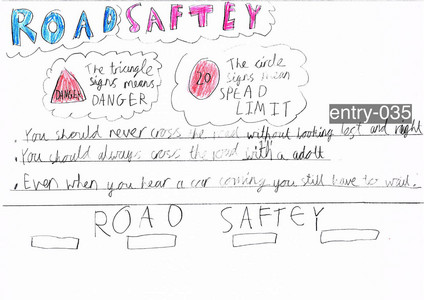 ROAD SAFTEY
The triangle
signs means
DANGER
DANGER
The circle
signs mean
SPEAD
LIMIT
20
entry-035
. You should never cross the road without looking left and right
. You should always cross the road with a adolt
. Even when you hear a car coming you still have to wait.
ROAD SAFTEY